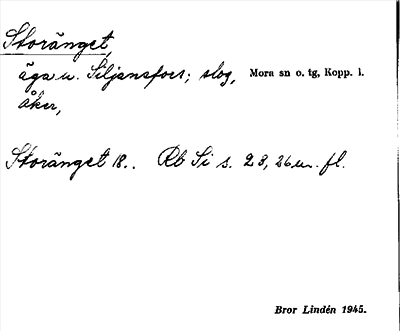 Storänget,
äga u. Siljansfors; slog, Mora sn o. tg, Kopp. l.
åker,
Storänget 18.. Rb Si s. 23, 26 m. fl.
Bror Lindén 1945.